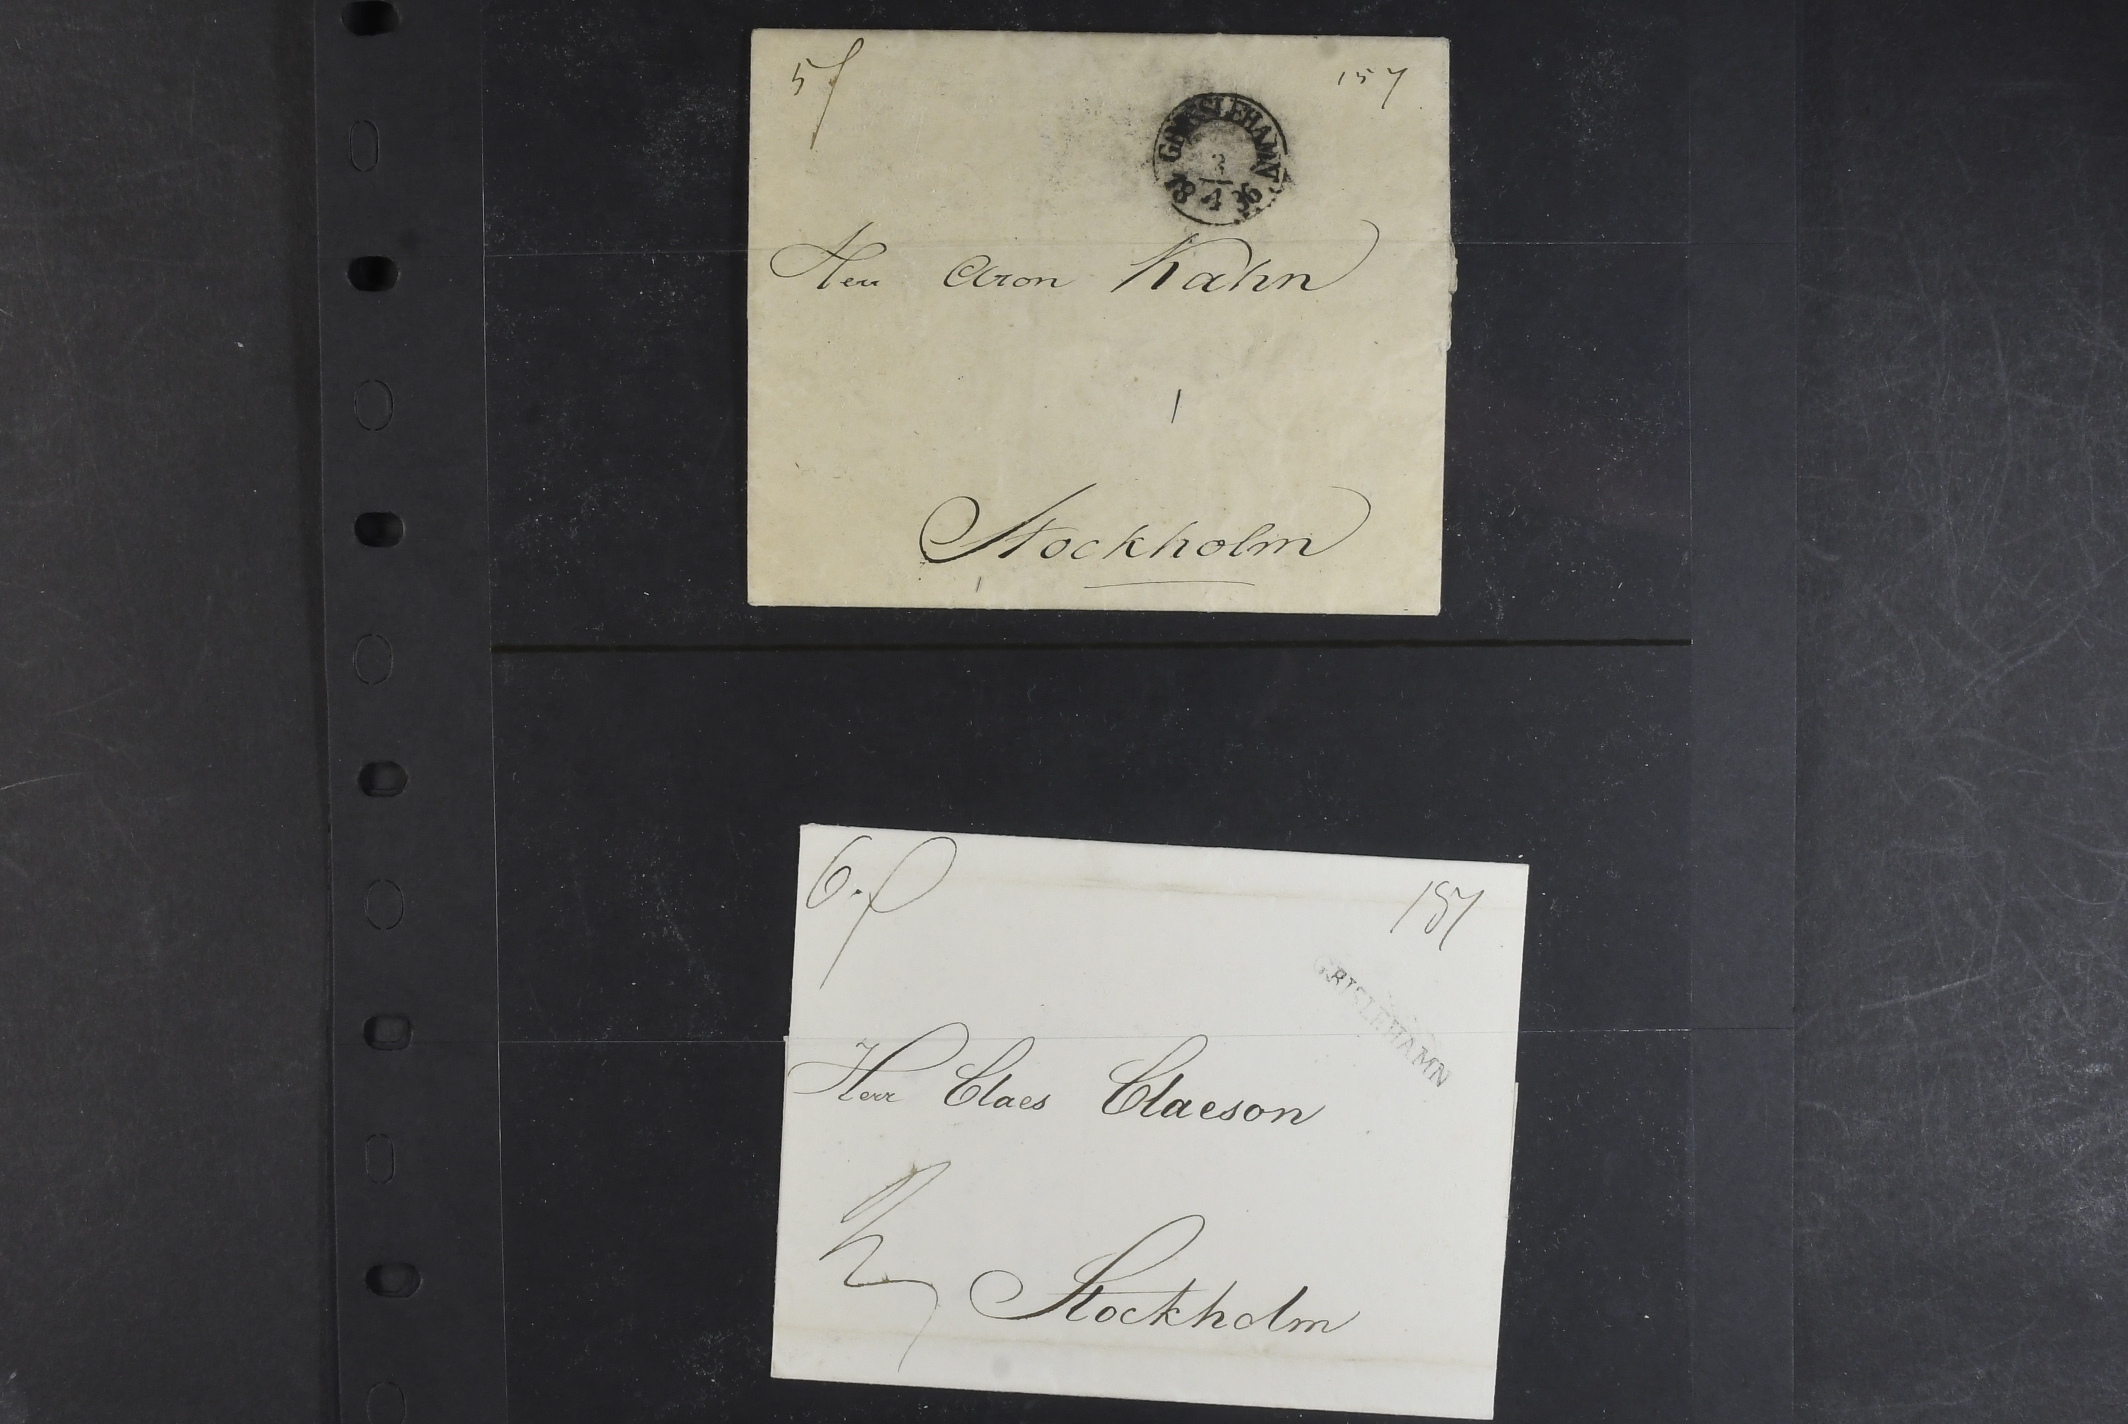 5
157
GRISSLEHAMN
3
18 4 36
Herr Aron Kahn
1
Stockholm
6.
157
GRISLEHAMN
Herr Claes Claeson
Stockholm